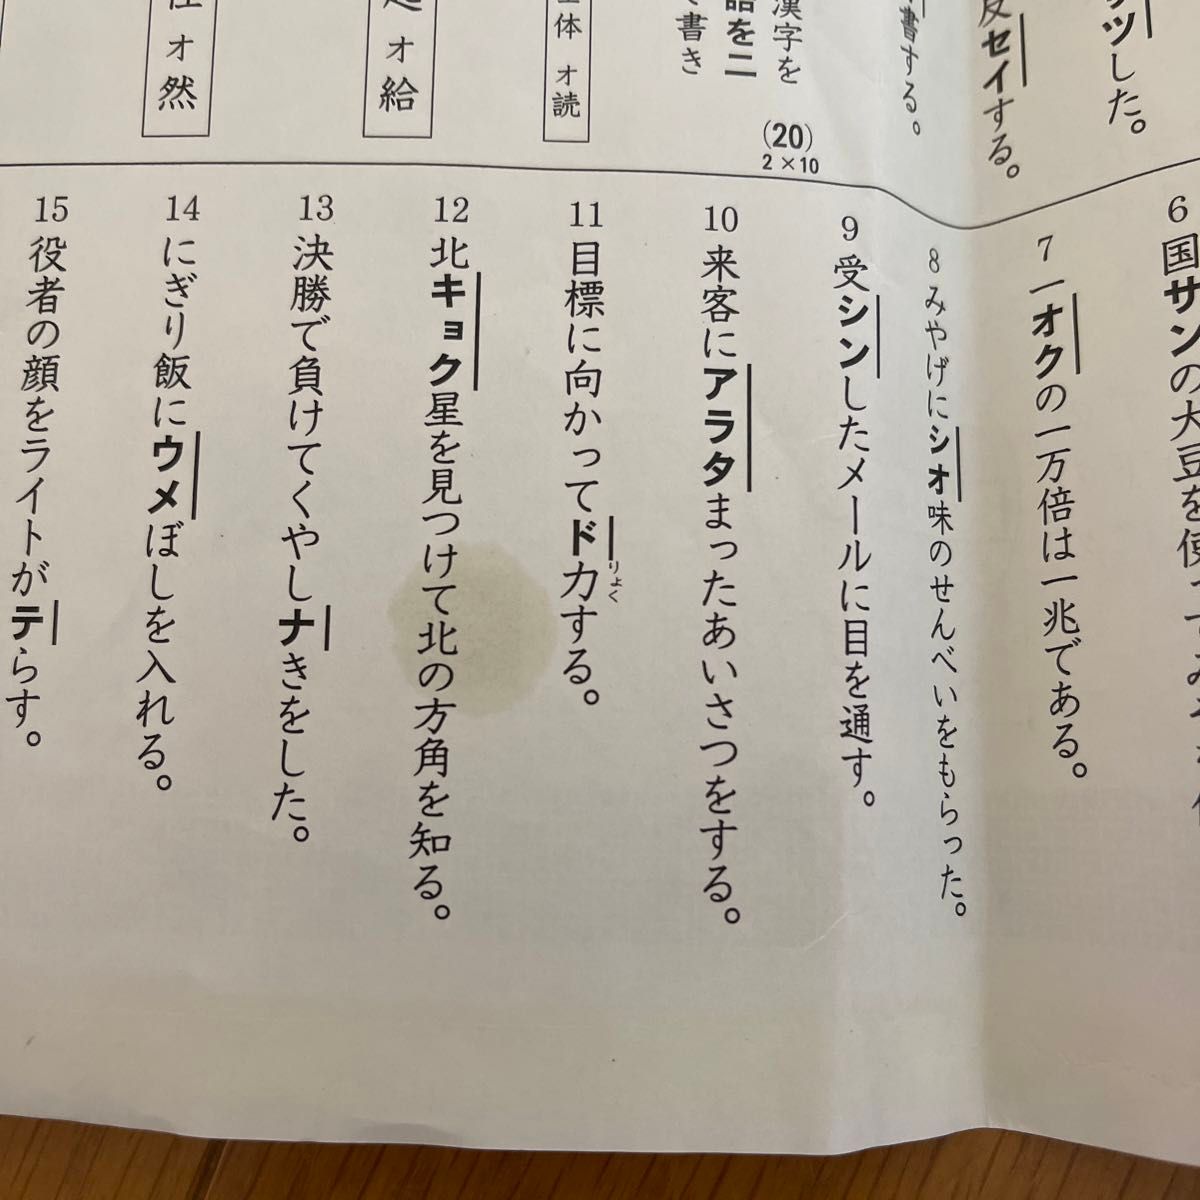 ツした。
反セイする。
書する。
漢字を
語を二
て書き
(20)
2×10
オ読
体
オ給
オ然
6 国サンの大豆を使ってみそを作
7 一オクの一万倍は一兆である。
8 みやげにシオ味のせんべいをもらった。
9 受シンしたメールに目を通す。
10 来客にアラタまったあいさつをする。
11 目標に向かってド力する。
りょく
12 北キョク星を見つけて北の方角を知る。
13 決勝で負けてくやしナきをした。
14 にぎり飯にウメぼしを入れる。
15 役者の顔をライトがテらす。